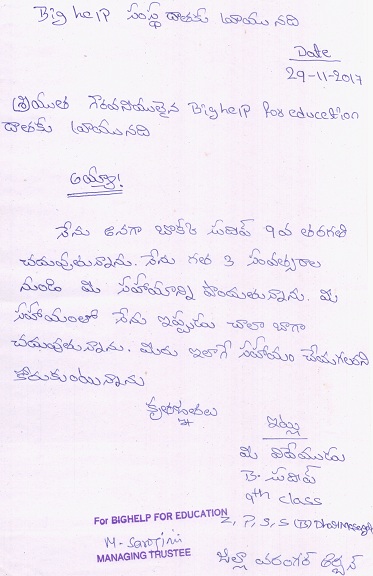 Big help సంస్థ దాతకు వ్రాయునది
Date
29-11-2017
శ్రీయుత గౌరవనీయులైన Bighelp for education
దాతకు వ్రాయునది
అయ్యా!
నేను అనగా బాకీ సుదీప్ 9వ తరగతి
చదువుతున్నాను. నేను గత 3 సంవత్సరాల
నుండి మీ సహాయాన్ని పొందుతున్నాను. మీ
సహాయంతో నేను ఇప్పుడు చాలా బాగా
చదువుతున్నాను. మీరు ఇలాగే సహాయం చేయగలరని
కోరుకుంటున్నాను
కృతజ్ఞతలు
ఇట్లు
మీ విధేయుడు
B. సుదీప్
9th class
For BIGHELP FOR EDUCATION
Z, P, S, S (B)
M. Sarojini
MANAGING TRUSTEE
జిల్లా వరంగల్ అర్బన్